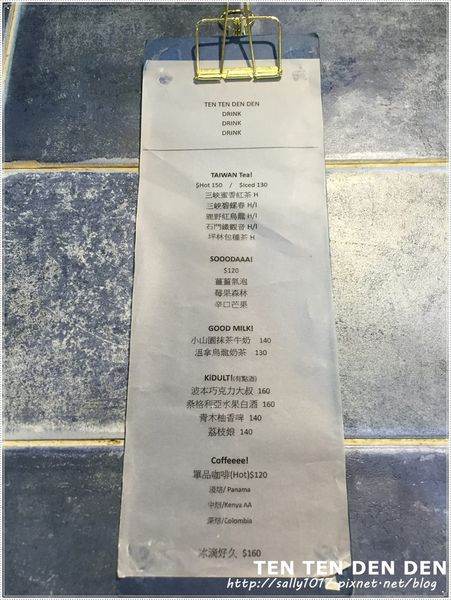 TEN TEN DEN DEN
DRINK
DRINK
DRINK
TAIWAN Tea!
$Hot 150 / $Iced 130
三峽蜜香紅茶 H
三峽碧螺春 H/I
鹿野紅烏龍 H/I
石門鐵觀音 H/I
坪林包種茶 H
SOOODAAA!
$120
薑薑氣泡
莓果森林
辛口芒果
GOOD MILK!
小山園抹茶牛奶 140
溫拿烏龍奶茶 130
KiDULT!(有點酒)
波本巧克力大叔 160
桑格利亞水果白酒 160
青木柚香啤 140
荔枝娘 140
Coffeeee!
單品咖啡(Hot)$120
淺焙/ Panama
中焙/Kenya AA
深焙/Colombia
冰滴好久 $160
TEN TEN DEN DEN
http://sally1017.pixnet.net/blog